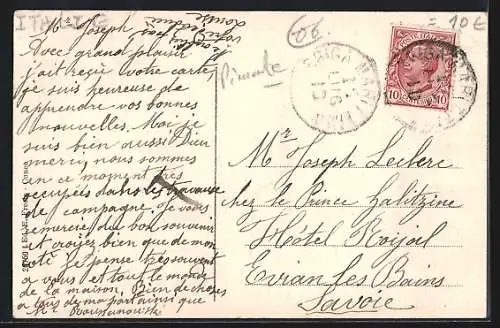 ITALIE
06
= 10€
Piemonte
BRIGA MARITTIMA
POSTE ITALIANE
10 10
Mr Joseph
Avec grand plaisir
j'ai reçu votre carte
je suis heureuse de
apprendre vos bonnes
nouvelles. Moi je
suis bien aussi Dieu
merci, nous sommes
en ce moment très
occupés dans les travaux
de campagne. Je vous
remercie du bon souvenir
et croyez bien que de mon
coté je pense très souvent
a vous et tout le monde
de la maison. Bien de choses
a tous de ma part ainsi que
Louise
Mr Joseph Leclerc
chez le Prince Galitzine
Hôtel Royal
Evian les Bains
Savoie